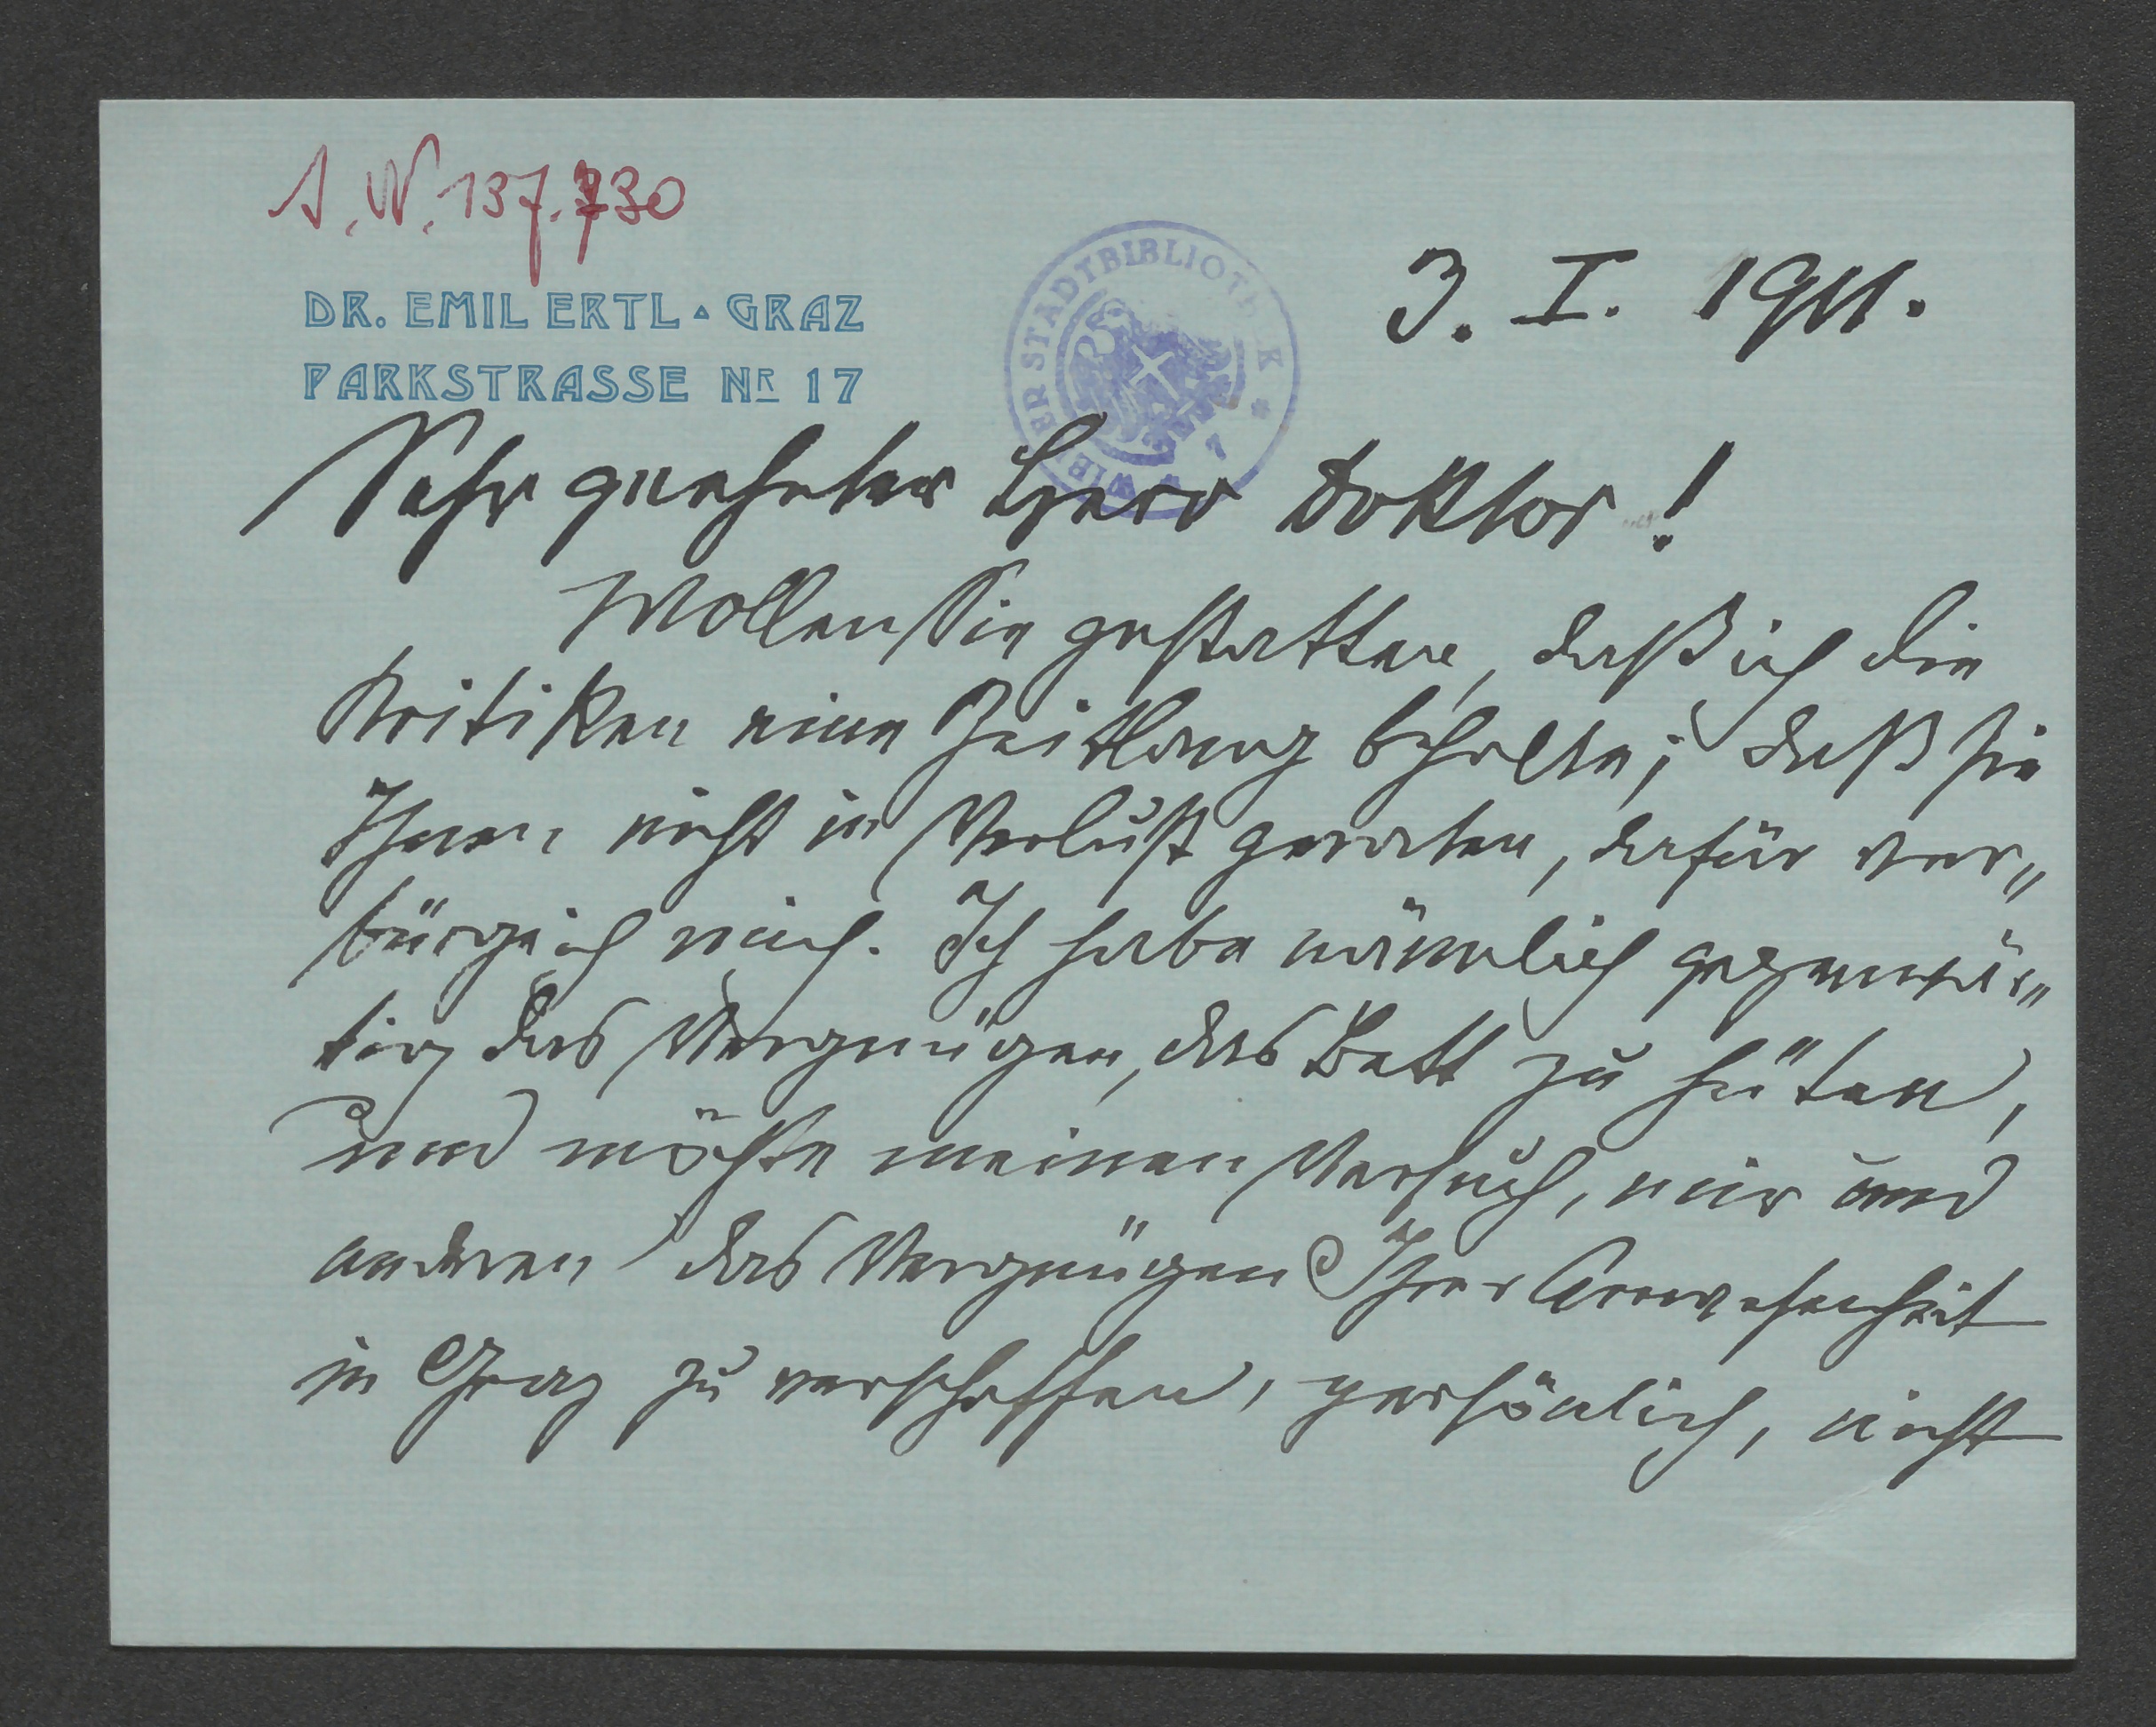 I.N. 137.730
DR. EMIL ERTL ▴ GRAZ
PARKSTRASSE Nr 17
WIENER STADTBIBLIOTHEK
3. I. 1911.
Sehr geehrter Herr Doktor!
Wollen Sie gestatten, daß ich die
Kritiken eine Zeitlang behalte; daß sie
Ihnen nicht in Verlust geraten, dafür ver„
bürge ich mich. Ich habe nämlich gegenwär„
tig das Vergnügen, das Bett zu hüten,
und möchte meinen Versuch, mir und
anderen das Vergnügen Ihrer Anwesenheit
in Graz zu verschaffen, persönlich, nicht